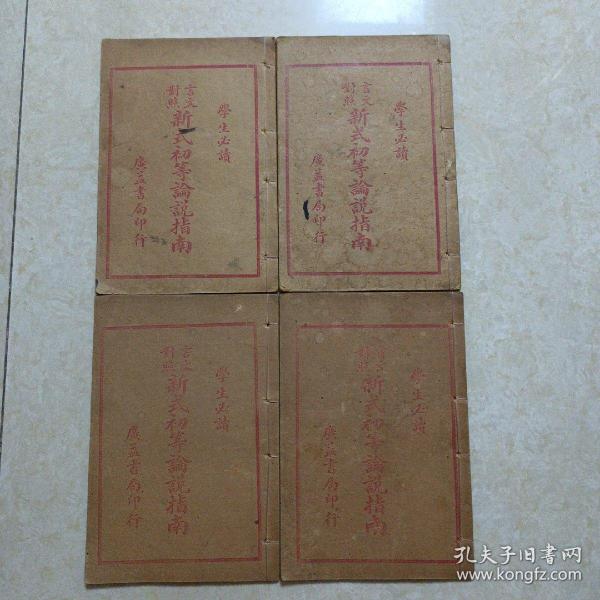 學生必讀
言文對照
新式初等論說指南
廣益書局印行
學生必讀
言文對照
新式初等論說指南
廣益書局印行
學生必讀
言文對照
新式初等論說指南
廣益書局印行
學生必讀
對照
新式初等論說指南
廣益書局印行
孔夫子旧书网
www.kongfz.com